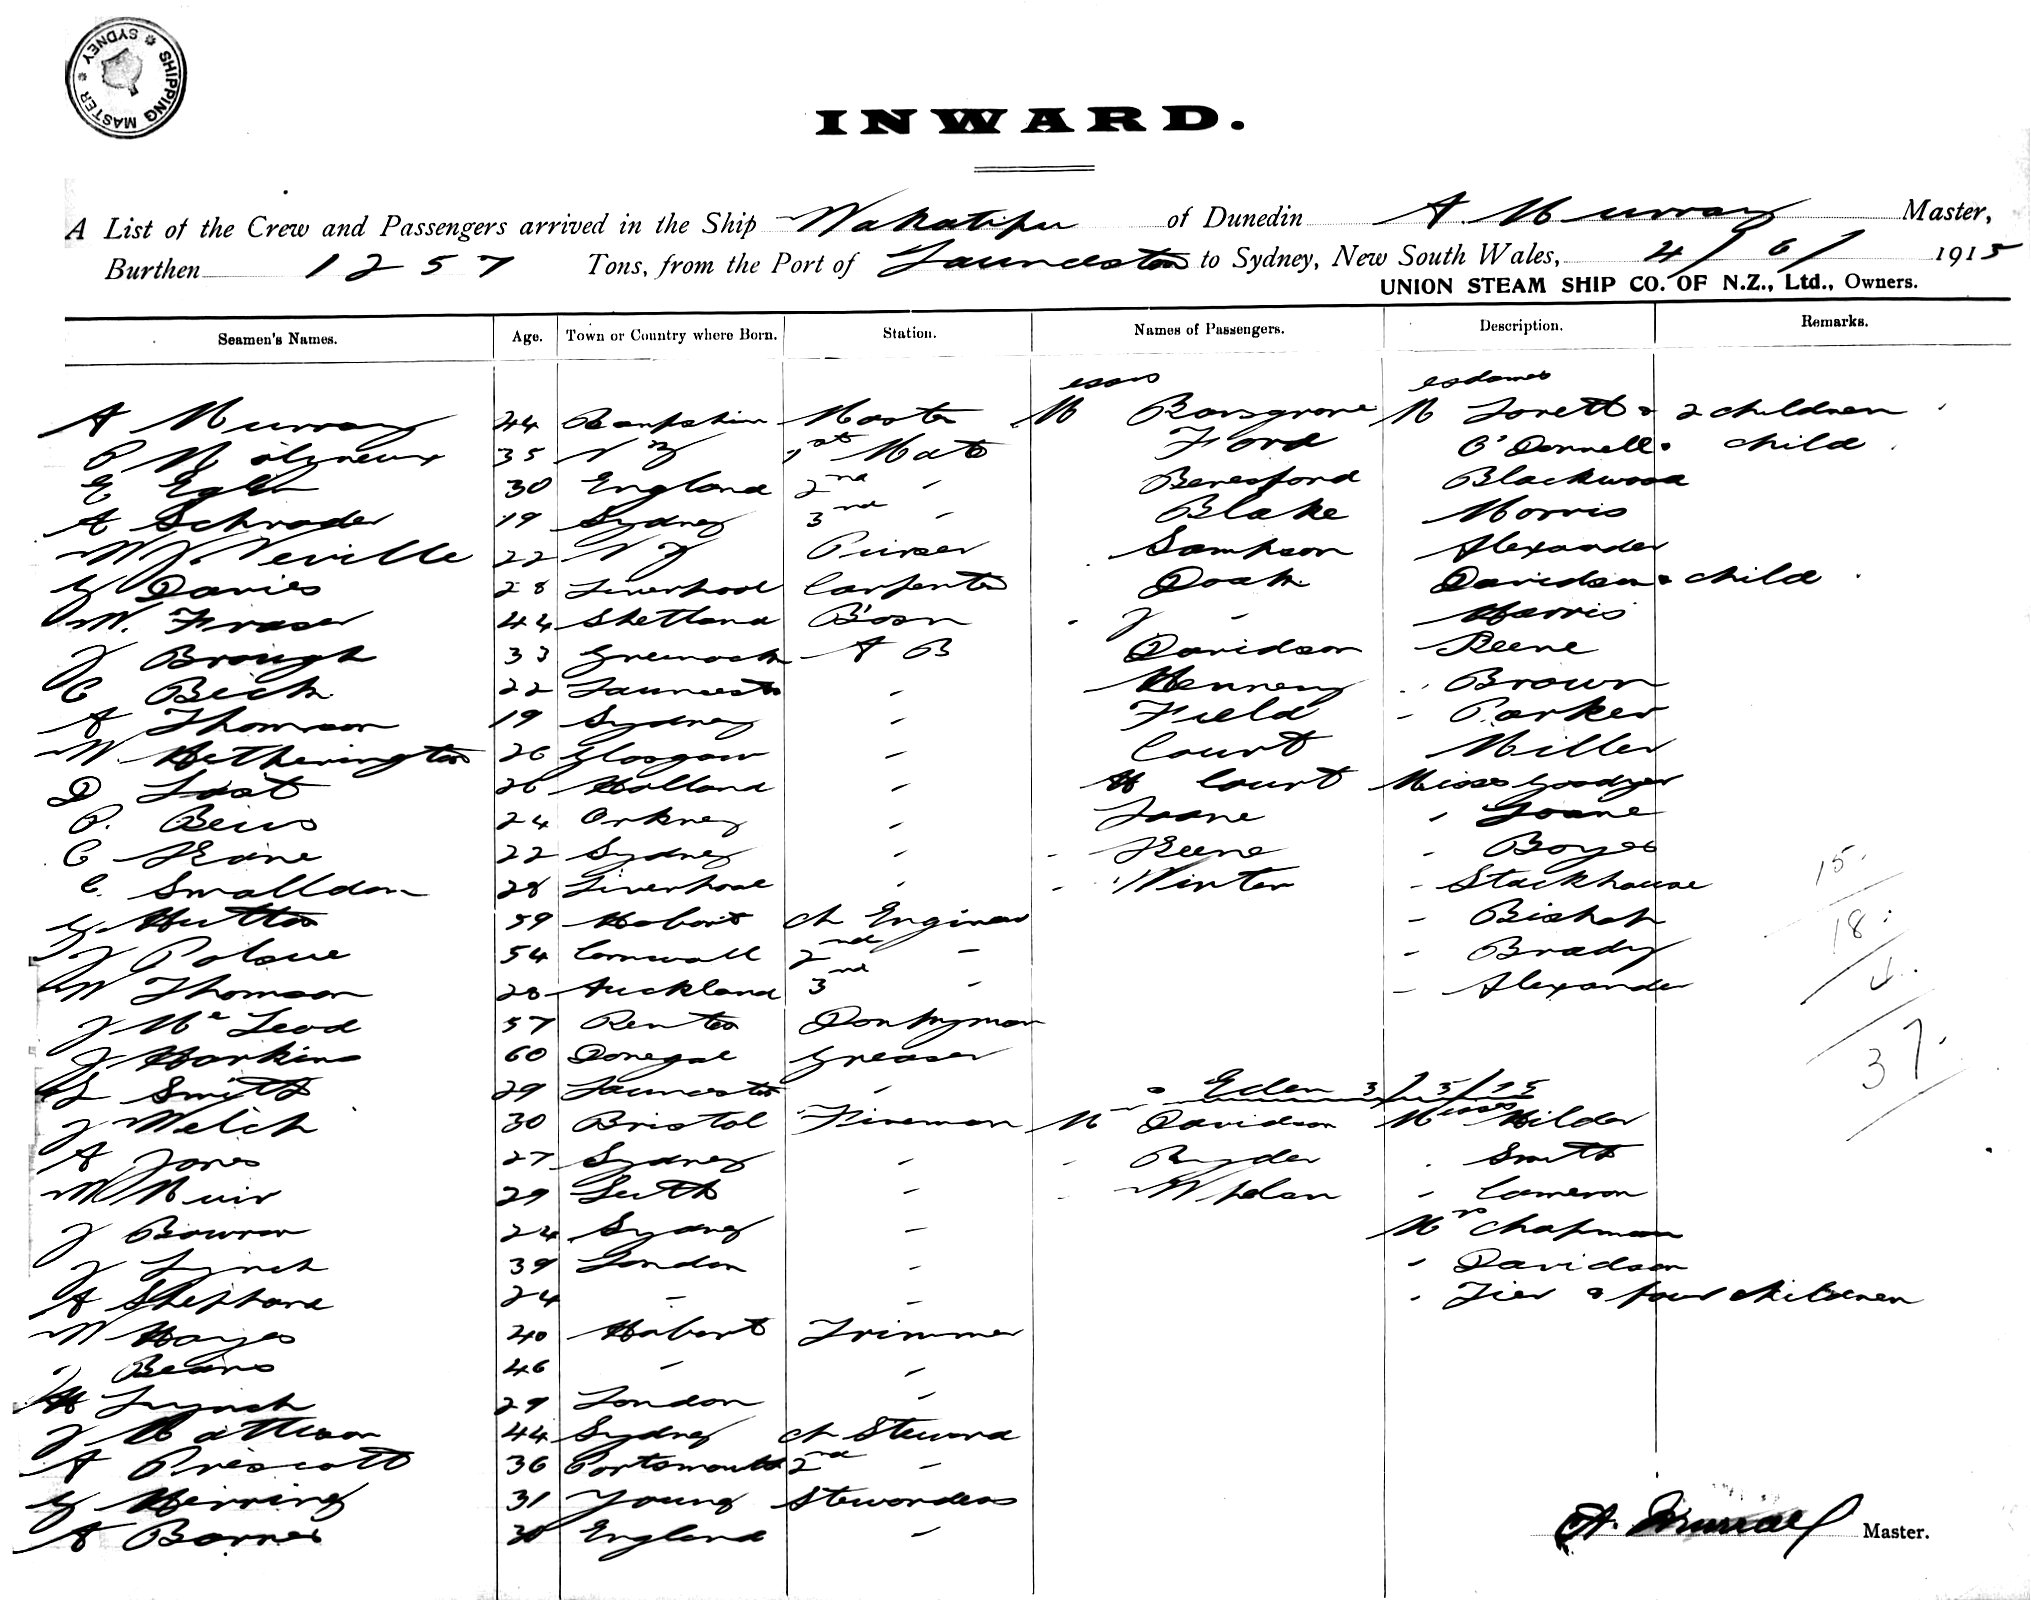 SHIPPING MASTER * SYDNEY *
INWARD.
A List of the Crew and Passengers arrived in the Ship Wakatipu of Dunedin A. Murray Master,
Burthen 1257 Tons, from the Port of Launceston to Sydney, New South Wales, 4/6/1915
UNION STEAM SHIP CO. OF N.Z., Ltd., Owners.
Seamen's Names. Age. Town or Country where Born. Station. Names of Passengers. Description. Remarks.
essrs esdames
A Murray 44 Master M M & 2 children
P Molyneux 35 N Z 1st Mate Ford O'Donnell & child
E 30 England 2nd " Beresford Blackwood
A Schrader 19 Sydney 3rd " Blake Morris
W J Neville 22 N Z Purser Sampson Alexander
G Davies 28 Liverpool Carpenter Doak Davidson & child
W. Fraser 44 Shetland B'osn J " Harris
J Brough 33 Greenock A B Davidson Keene
C Beck 22 Launceston " " Brown
A Thomson 19 Sydney " Field " Parker
W Hetherington 26 Glasgow " Court Miller
D Last 26 Holland " H Court Misses Goodyer
P. 24 Orkney " Joane " Joane
C Kane 22 Sydney " " Keene " Boyes
C. Smalldon 28 Liverpool " " Winter " Stackhouse
G Hutton 59 Hobart Ch Engineer " Bishop
J Polsue 54 Cornwall 2nd " " Brady
W Thomson 28 Auckland 3rd " " Alexander
J McLeod 57 Donkyman
J Harkins 60 Donegal Greaser
L Smith 29 Launceston " Eden 3/5/15
J Welch 30 Bristol Fireman Mr Davidson Misses Hilder
A Jones 27 Sydney " " Ryder " Smith
W Muir 29 Leith " " Whelan " Cameron
J Bowron 24 Sydney " Mrs Chapman
J Lynch 39 London " " Davidson
A Shephard 24 " " " Tier & four children
W Hayes 40 Hobart Trimmer
J 46 " "
H Lynch 29 London "
J Mattison 44 Sydney Ch Steward
A Prescott 36 Portsmouth 2nd "
G Herring 31 Young Stewardess
A Barnes England "
15.
18:
4.
37.
A. Murray Master.